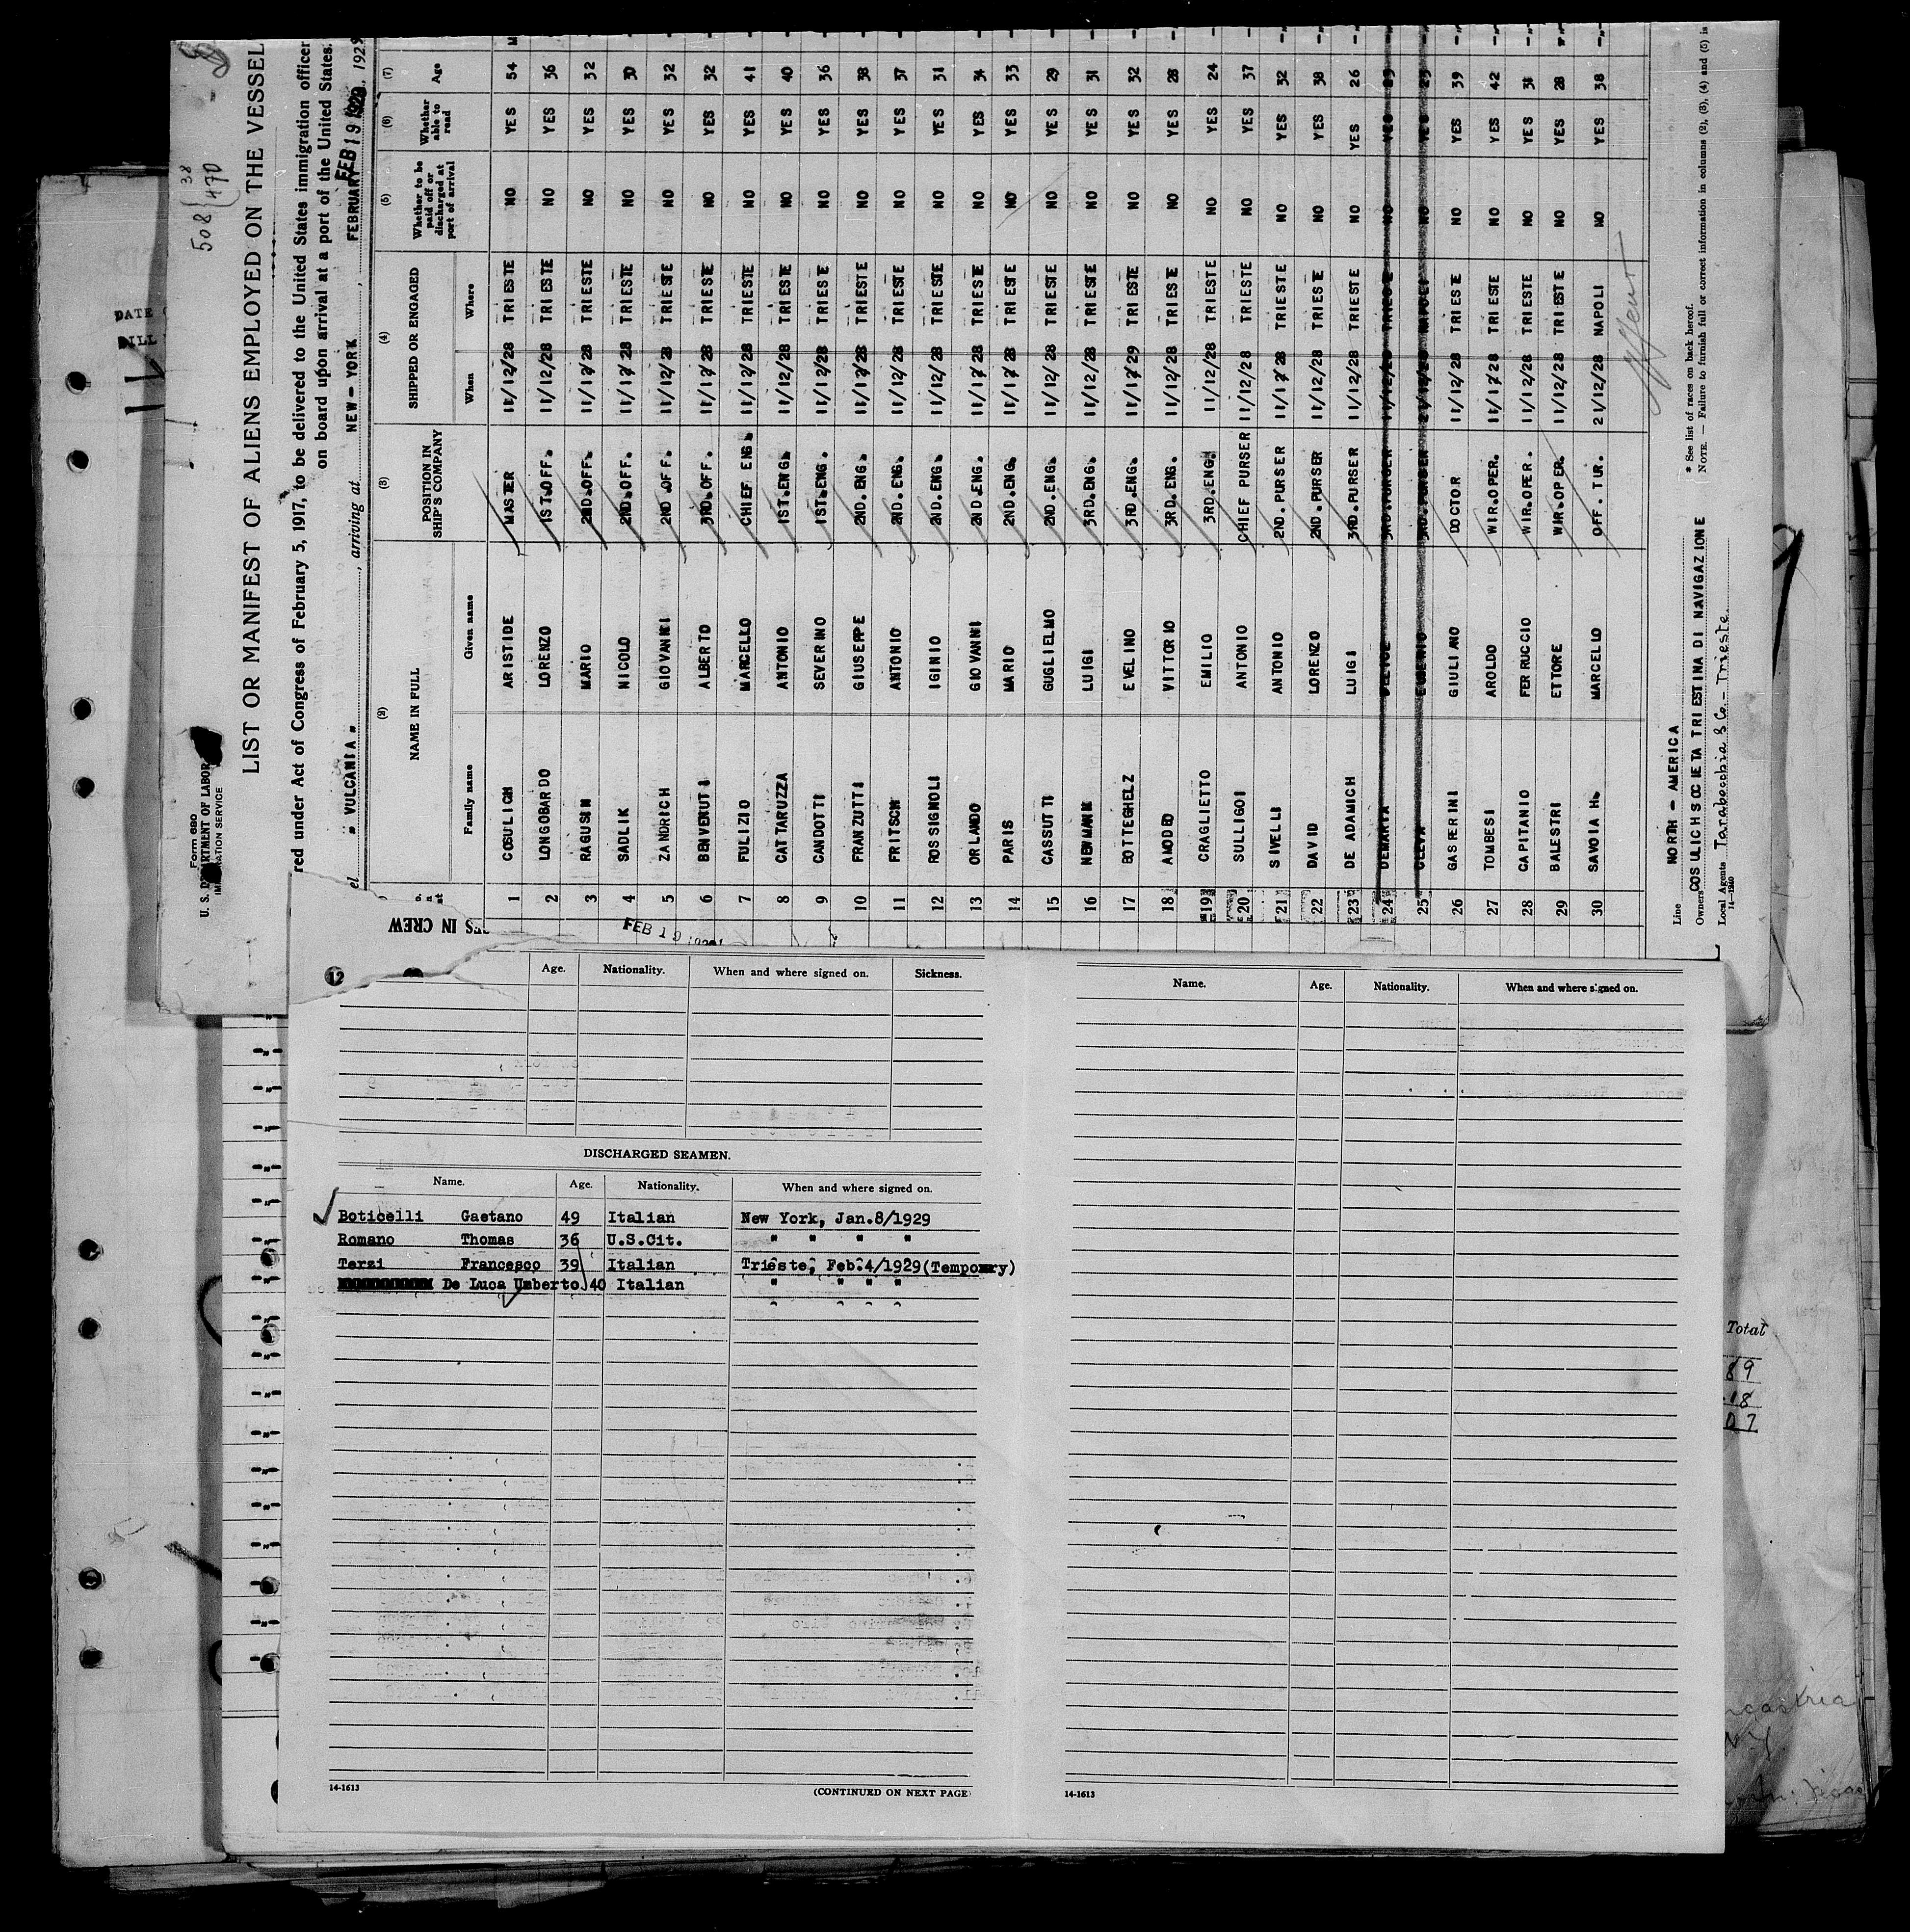 508 { 38
470
Form 680
U. S. DEPARTMENT OF LABOR
IMMIGRATION SERVICE
LIST OR MANIFEST OF ALIENS EMPLOYED ON THE VESSEL
red under Act of Congress of February 5, 1917, to be delivered to the United States immigration officer
on board upon arrival at a port of the United States.
FEB 19 1929
el " VULCANIA " , arriving at NEW - YORK , FEBRUARY , 1929
(2) (3) (4) (5) (6) (7)
NAME IN FULL POSITION IN SHIP'S COMPANY SHIPPED OR ENGAGED Whether to be paid off or discharged at port of arrival Whether able to read Age
Family name Given name When Where
1 COSULICH ARISTIDE MASTER 11/12/28 TRIESTE NO YES 54 M
2 LONGOBARDO LORENZO 1ST.OFF. 11/12/28 TRIESTE NO YES 36 -
3 RAGUSIN MARIO 2ND.OFF. 11/12/28 TRIESTE NO YES 32 -
4 SADLIK NICOLO 2ND.OFF. 11/12/28 TRIESTE NO YES 30 -
5 ZANDRICH GIOVANNI 2ND.OFF. 11/12/28 TRIESTE NO YES 32 -
6 BENVENUTI ALBERTO 3RD.OFF. 11/12/28 TRIESTE NO YES 32 -
7 FULIZIO MARCELLO CHIEF ENG. 11/12/28 TRIESTE NO YES 41 -
8 CATTARUZZA ANTONIO 1ST.ENG. 11/12/28 TRIESTE NO YES 40 -
9 CANDOTTI SEVERINO 1ST.ENG. 11/12/28 TRIESTE NO YES 36 -
10 FRANZUTTI GIUSEPPE 2ND.ENG. 11/12/28 TRIESTE NO YES 38 -
11 FRITSCH ANTONIO 2ND.ENG. 11/12/28 TRIESTE NO YES 37 -
12 ROSSIGNOLI IGINIO 2ND.ENG. 11/12/28 TRIESTE NO YES 31 -
13 ORLANDO GIOVANNI 2ND.ENG. 11/12/28 TRIESTE NO YES 34 -
14 PARIS MARIO 2ND.ENG. 11/12/28 TRIESTE NO YES 33 -
15 CASSUTTI GUGLIELMO 2ND.ENG. 11/12/28 TRIESTE NO YES 29 -
16 NEWMANK LUIGI 3RD.ENG. 11/12/28 TRIESTE NO YES 31 -
17 BOTTEGHELZ EVELINO 3RD.ENG. 11/12/29 TRIESTE NO YES 32 -
18 AMODEO VITTORIO 3RD.ENG. 11/12/28 TRIESTE NO YES 28 -
19 CRAGLIETTO EMILIO 3RD.ENG. 11/12/28 TRIESTE NO YES 24 -
20 SULLIGOI ANTONIO CHIEF PURSER 11/12/28 TRIESTE NO YES 37 -
21 SIVELLI ANTONIO 2ND.PURSER 11/12/28 TRIESTE NO YES 32 -"
22 DAVID LORENZO 2ND.PURSER 11/12/28 TRIESTE NO YES 38 -"
23 DE ADAMICH LUIGI 3RD.PURSER 11/12/28 TRIESTE NO YES 26 -"
24 DEMARTA 3RD.PURSER 11/12/28 TRIESTE NO YES
25 CLEVA 3RD.PURSER NO YES
26 GASPERINI GIULIANO DOCTOR 11/12/28 TRIESTE NO YES 39 -"
27 TOMBESI AROLDO WIR.OPER. 11/12/28 TRIESTE NO YES 42 -"
28 CAPITANIO FERRUCCIO WIR.OPER. 11/12/28 TRIESTE NO YES 31 -"
29 BALESTRI ETTORE WIR.OPER. 11/12/28 TRIESTE NO YES 28 -"
30 SAVOIA H. MARCELLO OFF. TUR. 21/12/28 NAPOLI NO YES 38 -"
Line NORTH - AMERICA
Owners COSULICH SOCIETA TRIESTINA DI NAVIGAZIONE
Local Agents Tarabocchia & Co. - Trieste.
14-1240
* See list of races on back hereof.
NOTE. — Failure to furnish full or correct information in columns (2), (3), (4) and (5) is
ES IN CREW
FEB 19 1929
12
Age. Nationality. When and where signed on. Sickness.
DISCHARGED SEAMEN.
Name. Age. Nationality. When and where signed on.
Boticelli Gaetano 49 Italian New York, Jan.8/1929
Romano Thomas 36 U.S.Cit. " " " "
Terzi Francesco 39 Italian Trieste, Feb.4/1929(Temporry)
De Luca Umberto 40 Italian " " " "
14-1613
(CONTINUED ON NEXT PAGE)
Name. Age. Nationality. When and where signed on.
14-1613
DATE
Total
89
18
07